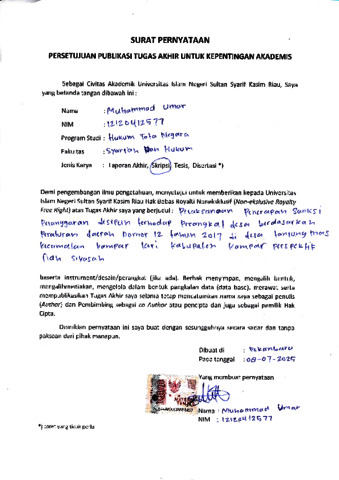 SURAT PERNYATAAN
PERSETUJUAN PUBLIKASI TUGAS AKHIR UNTUK KEPENTINGAN AKADEMIS
Sebagai Civitas Akademik Universitas Islam Negeri Sultan Syarif Kasim Riau, Saya
yang bertanda tangan dibawah ini :
Nama : Muhammad Umar
NIM : 12120412577
Program Studi : Hukum Tata Negara
Fakultas : Syariah Dan Hukum
Jenis Karya : Laporan Akhir, Skripsi, Tesis, Disertasi *)
Demi pengembangan ilmu pengetahuan, menyetujui untuk memberikan kepada Universitas
Islam Negeri Sultan Syarif Kasim Riau Hak Bebas Royalti Noneksklusif (Non-exlusive Royalty
Free Right) atas Tugas Akhir saya yang berjudul : Pelaksanaan Penerapan Sanksi
Pelanggaran disiplin terhadap Perangkat desa berdasarkan
Peraturan daerah Nomor 12 tahun 2017 di desa tanjung
Kecamatan Kampar kiri Kabupaten Kampar Perspektif
fiqh siyasah
beserta instrument/desain/perangkat (jika ada). Berhak menyimpan, mengalih bentuk,
mengalihmediakan, mengelola dalam bentuk pangkalan data (data base), merawat serta
mempublikasikan Tugas Akhir saya selama tetap mencantumkan nama saya sebagai penulis
(Author) dan Pembimbing sebagai co Author atau pencipta dan juga sebagai pemilik Hak
Cipta.
Demikian pernyataan ini saya buat dengan sesungguhnya secara sadar dan tanpa
paksaan dari pihak manapun.
Dibuat di : Pekanbaru
Pada tanggal : 08-07-2025
Yang membuat pernyataan
Nama : Muhammad Umar
NIM : 12120412577
*) coret yang tidak perlu